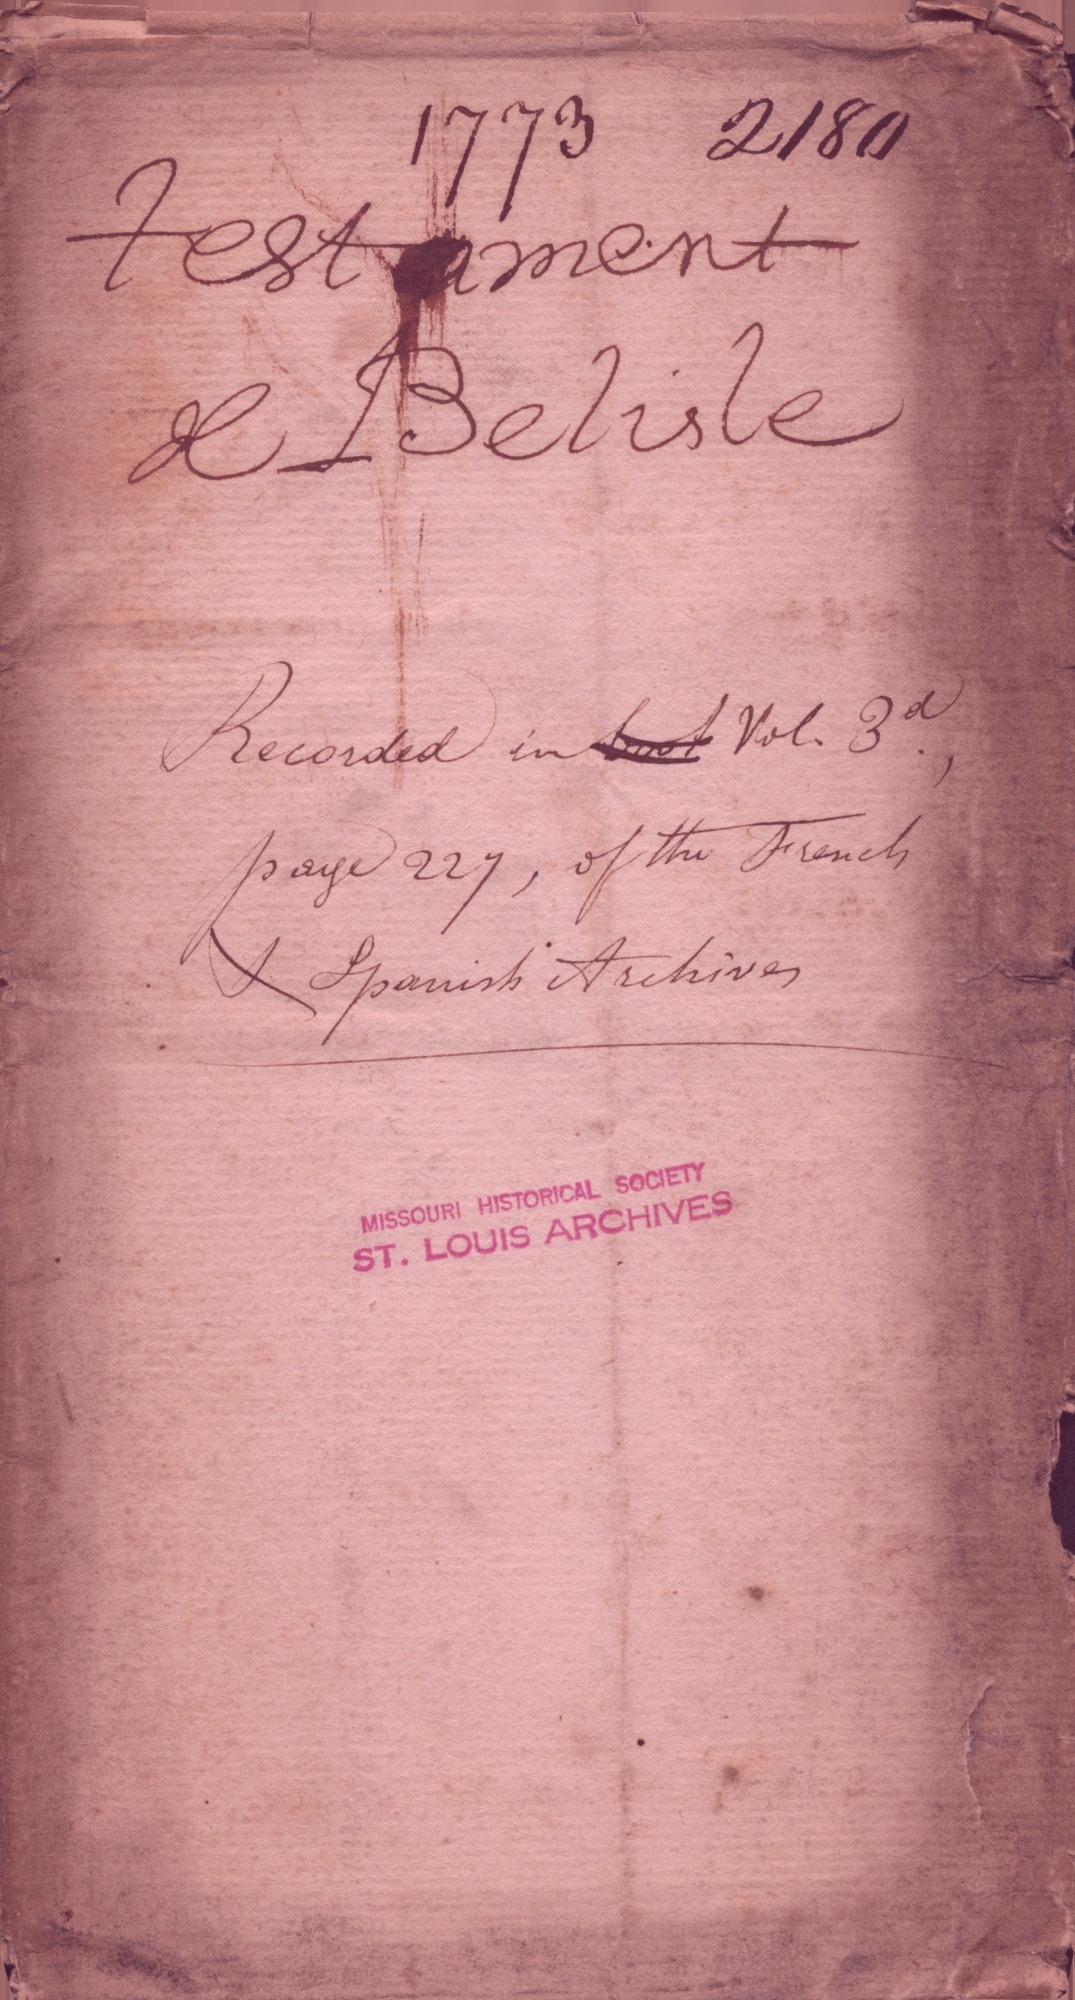 1773 2180
testament
de Belisle
Recorded in book Vol. 3d.,
page 227, of the French
& Spanish Archives
MISSOURI HISTORICAL SOCIETY
ST. LOUIS ARCHIVES